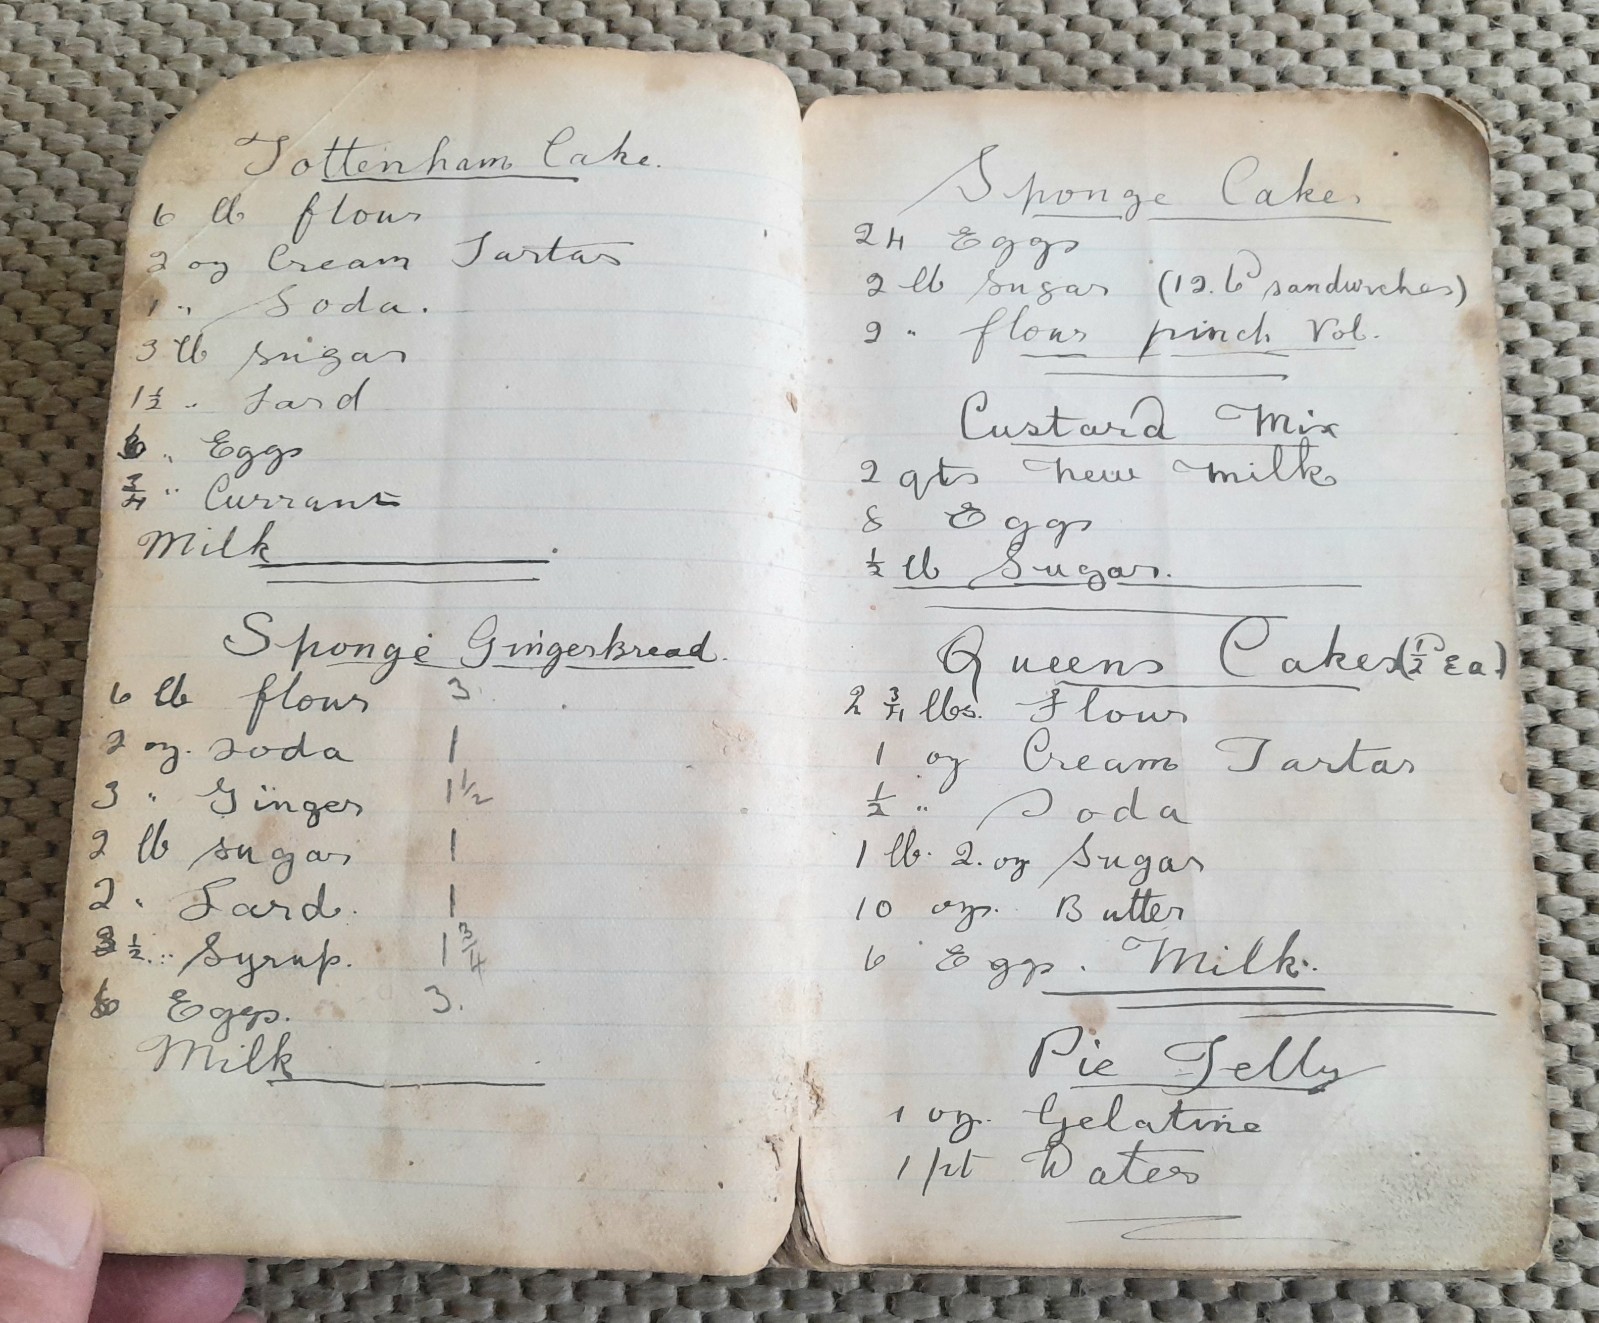 Tottenham Cake.
6 lb flour
2 oz Cream Tartar
1 " Soda.
3 lb sugar
1½ " Lard
6 " Eggs
¾ " Currants
Milk
Sponge Gingerbread.
6 lb flour 3
2 oz. soda 1
3 " Ginger 1½
2 lb sugar 1
2 " Lard. 1
3½ " Syrup. 1¾
6 Eggs. 3.
Milk
Sponge Cake.
24 Eggs
2 lb sugar (12. 6ᴰ sandwiches)
2 " flour pinch Vol.
Custard Mix
2 qts new milk
8 Eggs
½ lb Sugar.
Queens Cakes (½ᴰ Ea)
2 ¾ lbs. Flour
1 oz Cream Tartar
½ " Soda
1 lb. 2. oz Sugar
10 ozs. Butter
6 Eggs. Milk.
Pie Jelly
1 oz. Gelatine
1 pt Water